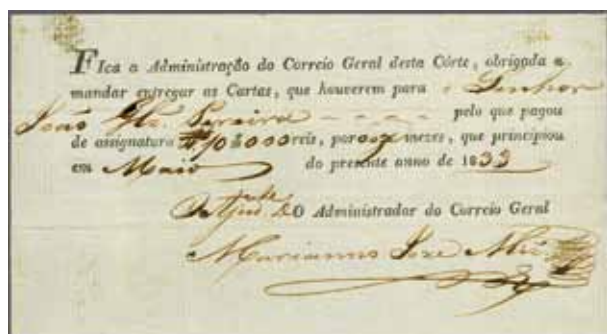 FIca a Administração do Correio Geral desta Côrte, obrigada a
mandar entregar as Cartas, que houverem para o Senhor
João Pereira pelo que pagou
de assignatura reis, por mezes, que principiou
em Maio do presente anno de 1833
O Administrador do Correio Geral
Marianno Joze